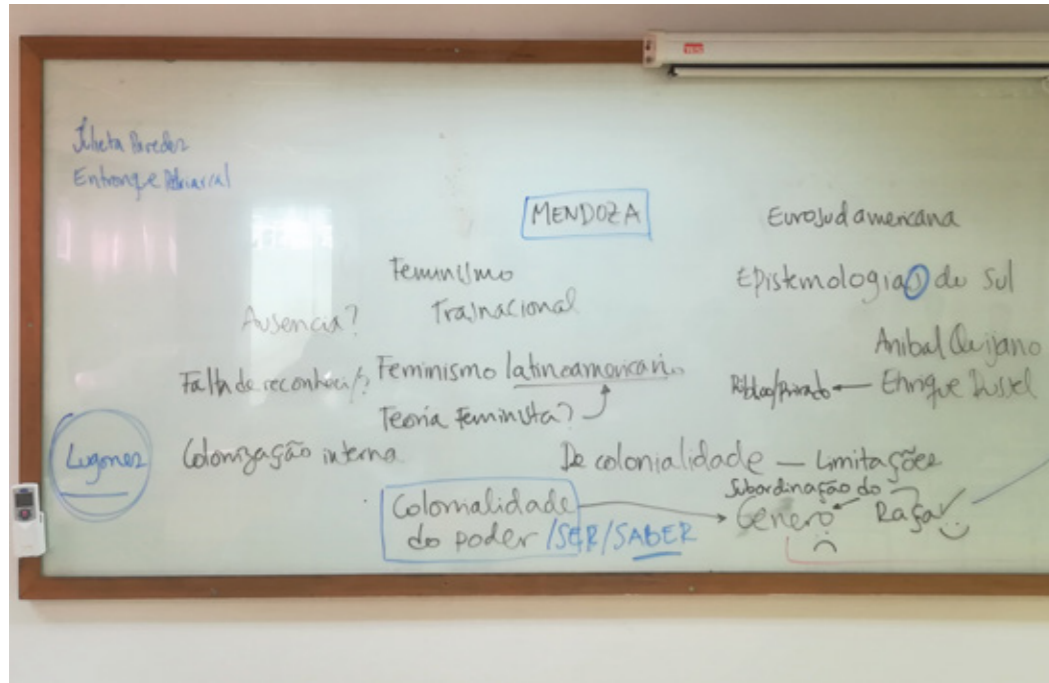 Julieta Paredes
Entronque Patriarcal
MENDOZA
Eurosudamericana
Feminismo
Trasnacional
Epistemologias do Sul
Ausencia?
Anibal Quijano
Falta de reconheci/?
Feminismo latinoamericano
Público/Privado ← Enrique Dussel
Teoría Feminista?
Lugones
Colonização interna
De colonialidade — Limitações
Subordinação do
Colonialidade
do poder /SER/SABER
Genero
Raça